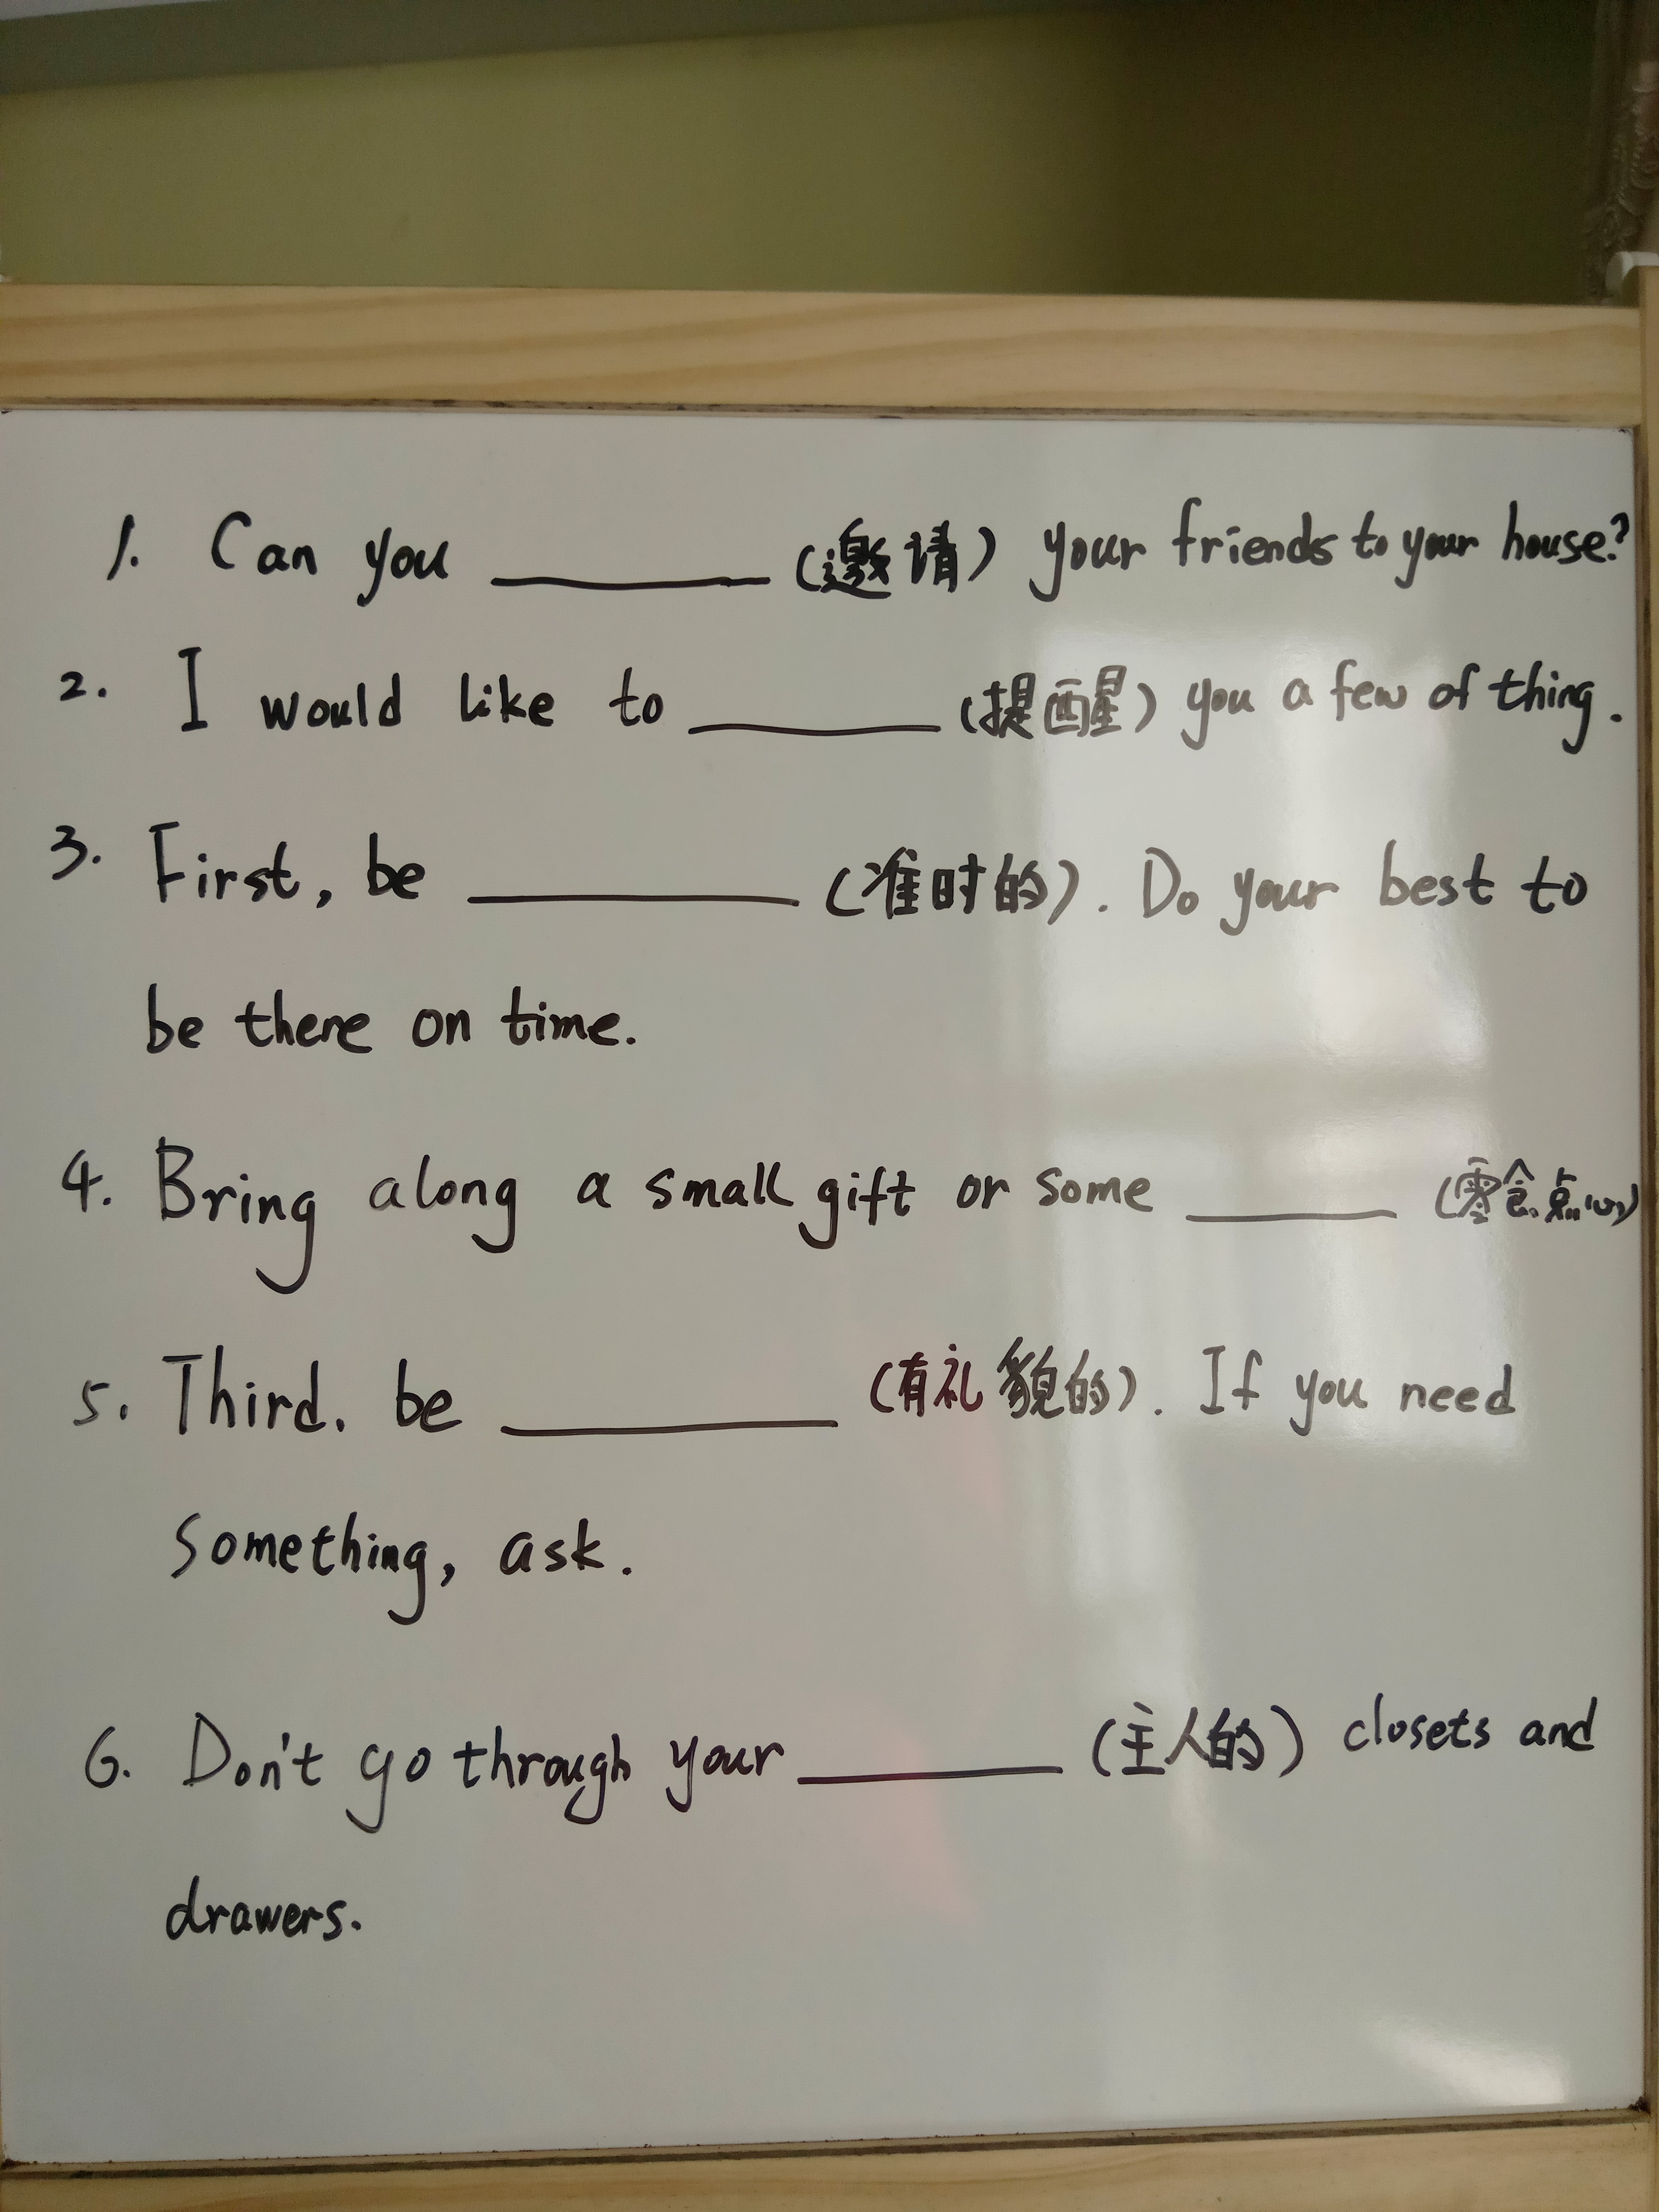 1. Can you ________ (邀请) your friends to your house?
2. I would like to ________ (提醒) you a few of thing.
3. First, be ________ (准时的). Do your best to
be there on time.
4. Bring along a small gift or some ________ (零食点心)
5. Third. be ________ (有礼貌的). If you need
Something, ask.
6. Don't go through your ________ (主人的) closets and
drawers.